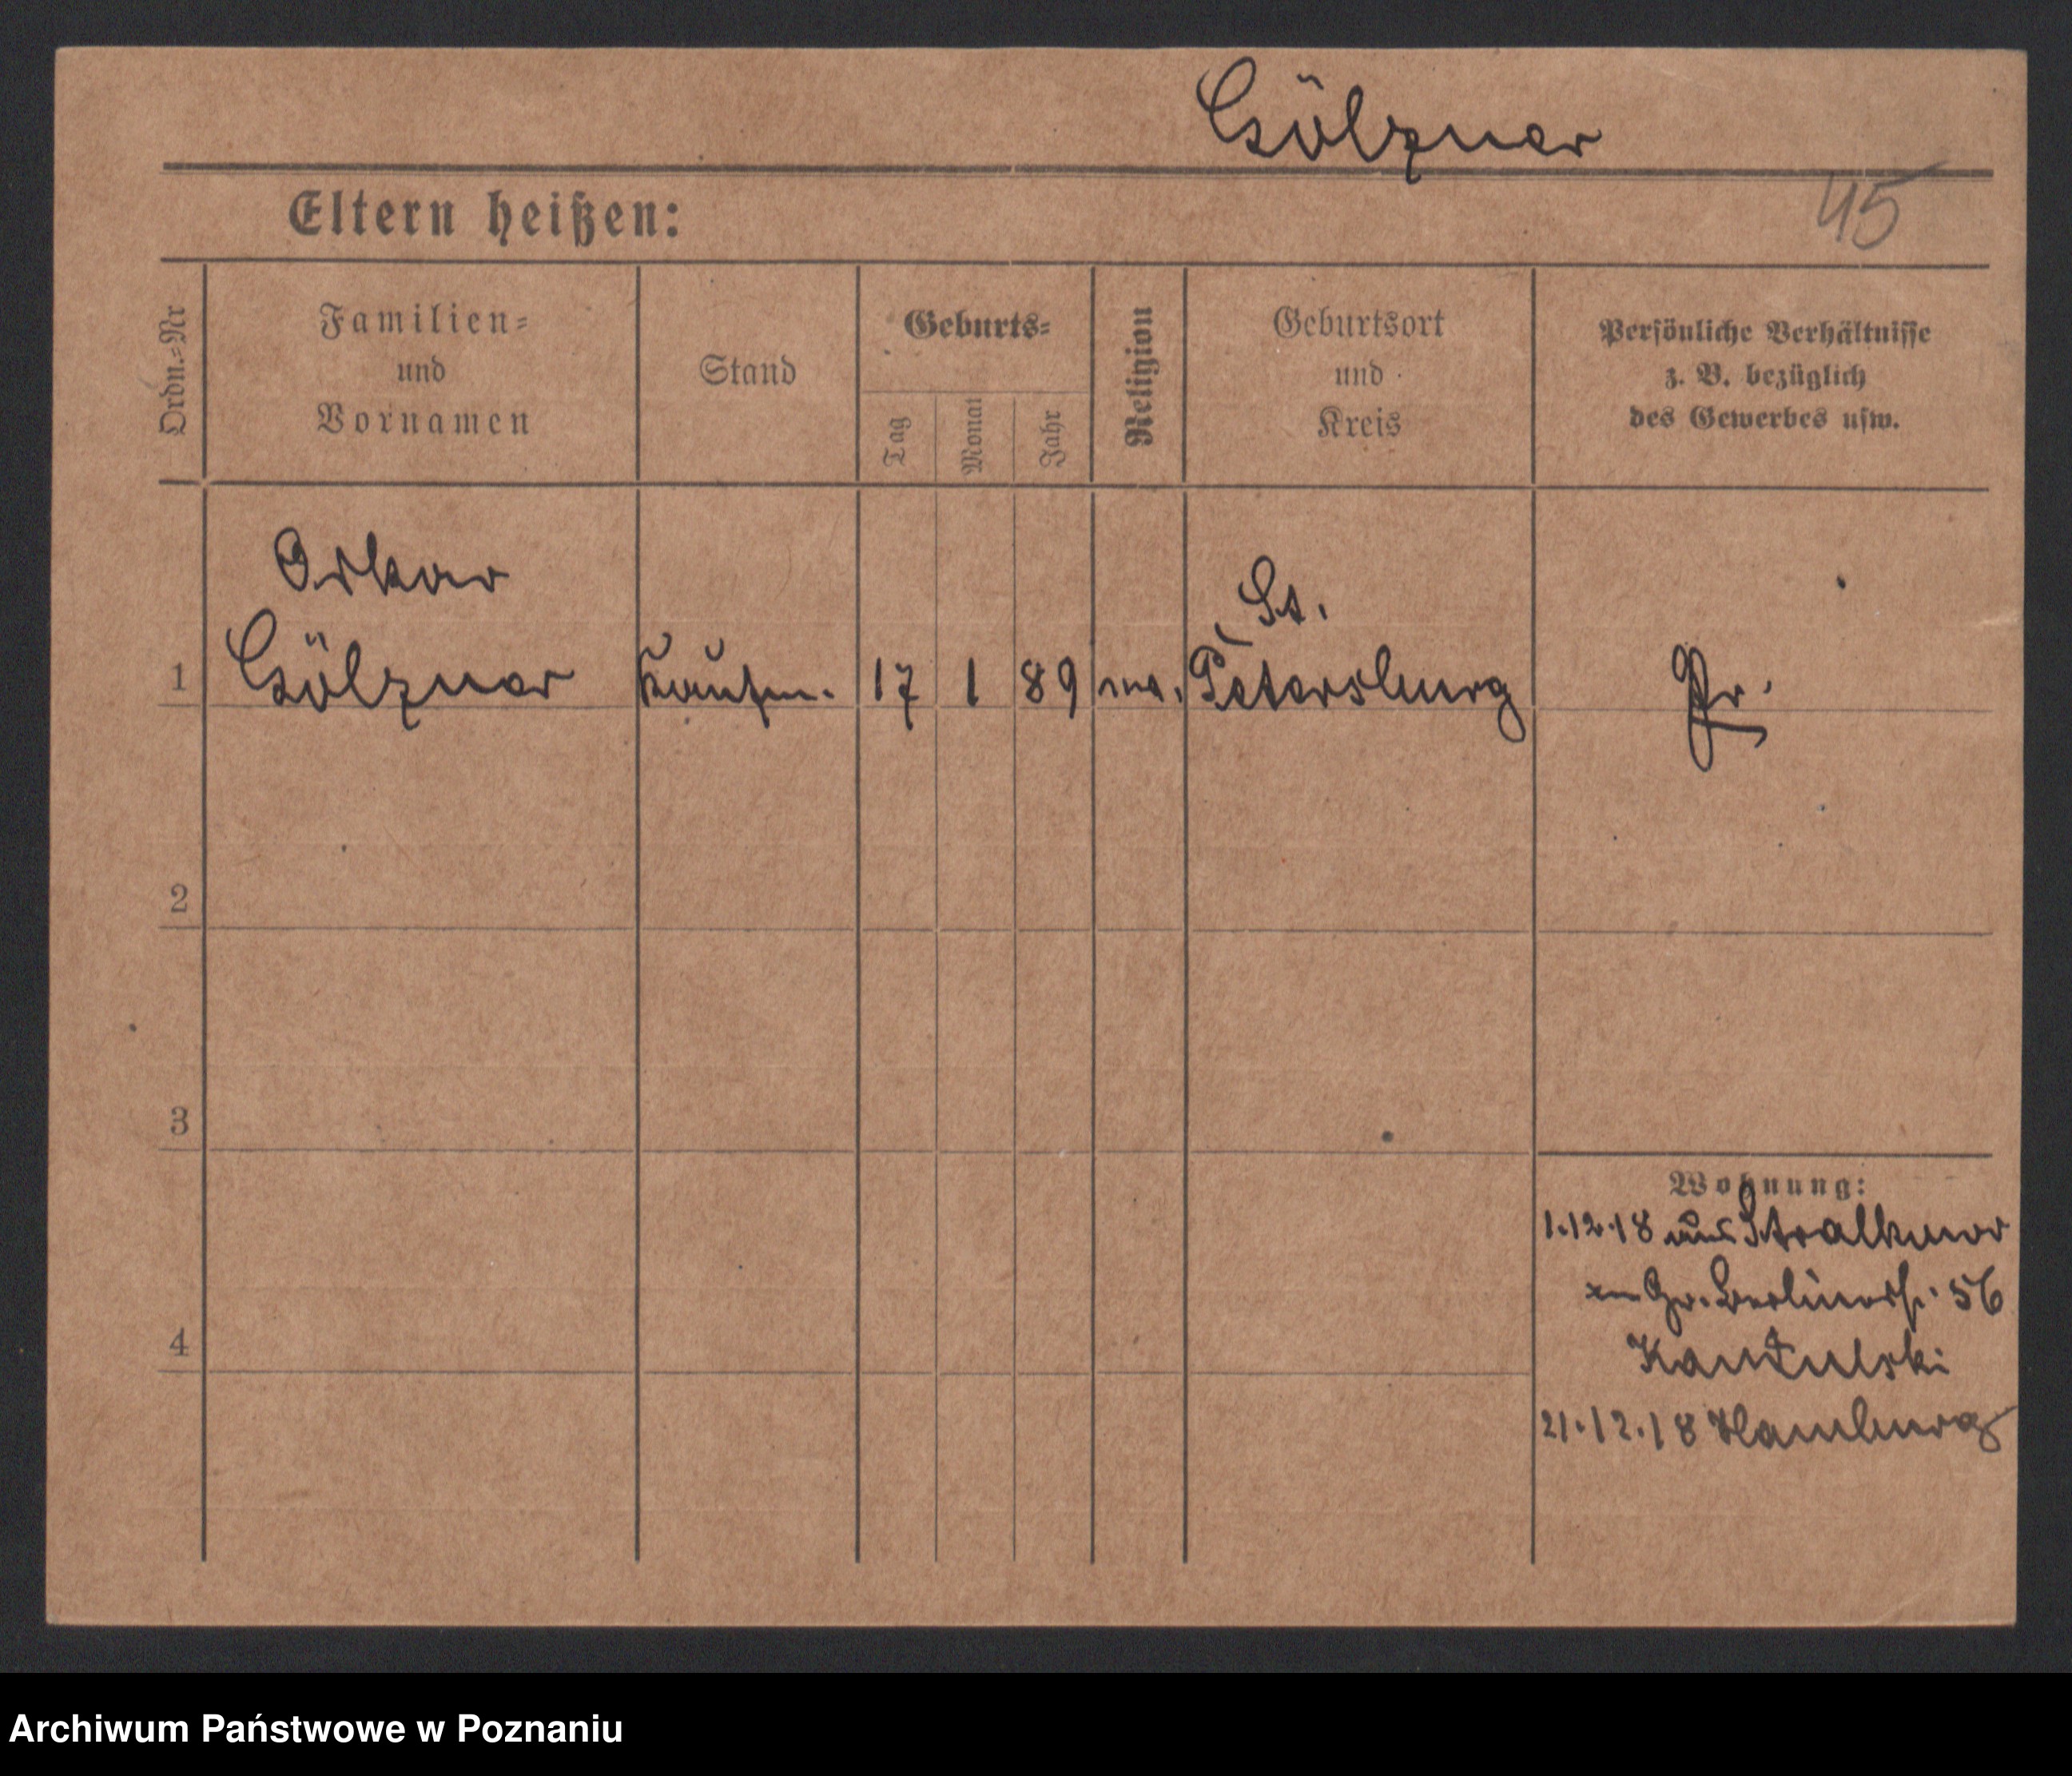 Gölzner
Eltern heißen:
45
Ordn.=Nr
Familien=
und
Vornamen
Stand
Geburts=
Tag
Monat
Jahr
Religion
Geburtsort
und
Kreis
Persönliche Verhältnisse
z. B. bezüglich
des Gewerbes usw.
Oskar
Gölzner
Kaufm.
17
1
89
St.
Petersburg
Pr.
1
2
3
4
Wohnung:
1.12.18 aus Stralkowo
Gr. Berlinerstr. 56
Kandulski
21.12.18 Hamburg
Archiwum Państwowe w Poznaniu